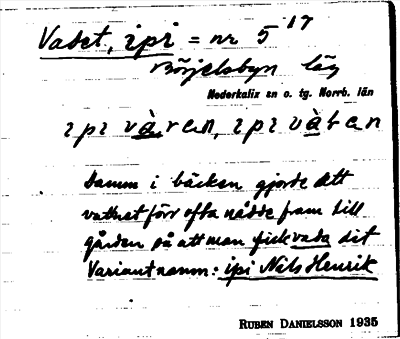 Vadet, ipi = nr 5 17
Börjelsbyn låg
Nederkalix sn o. tg. Norrb. län
ipi và ren, ipi vàtan
Damm i bäcken gjorde att
vattnet förr ofta nådde fram till
gården på att man fick vada dit
Variantnamn: ipi Nils Henrik
RUBEN DANIELSSON 1935